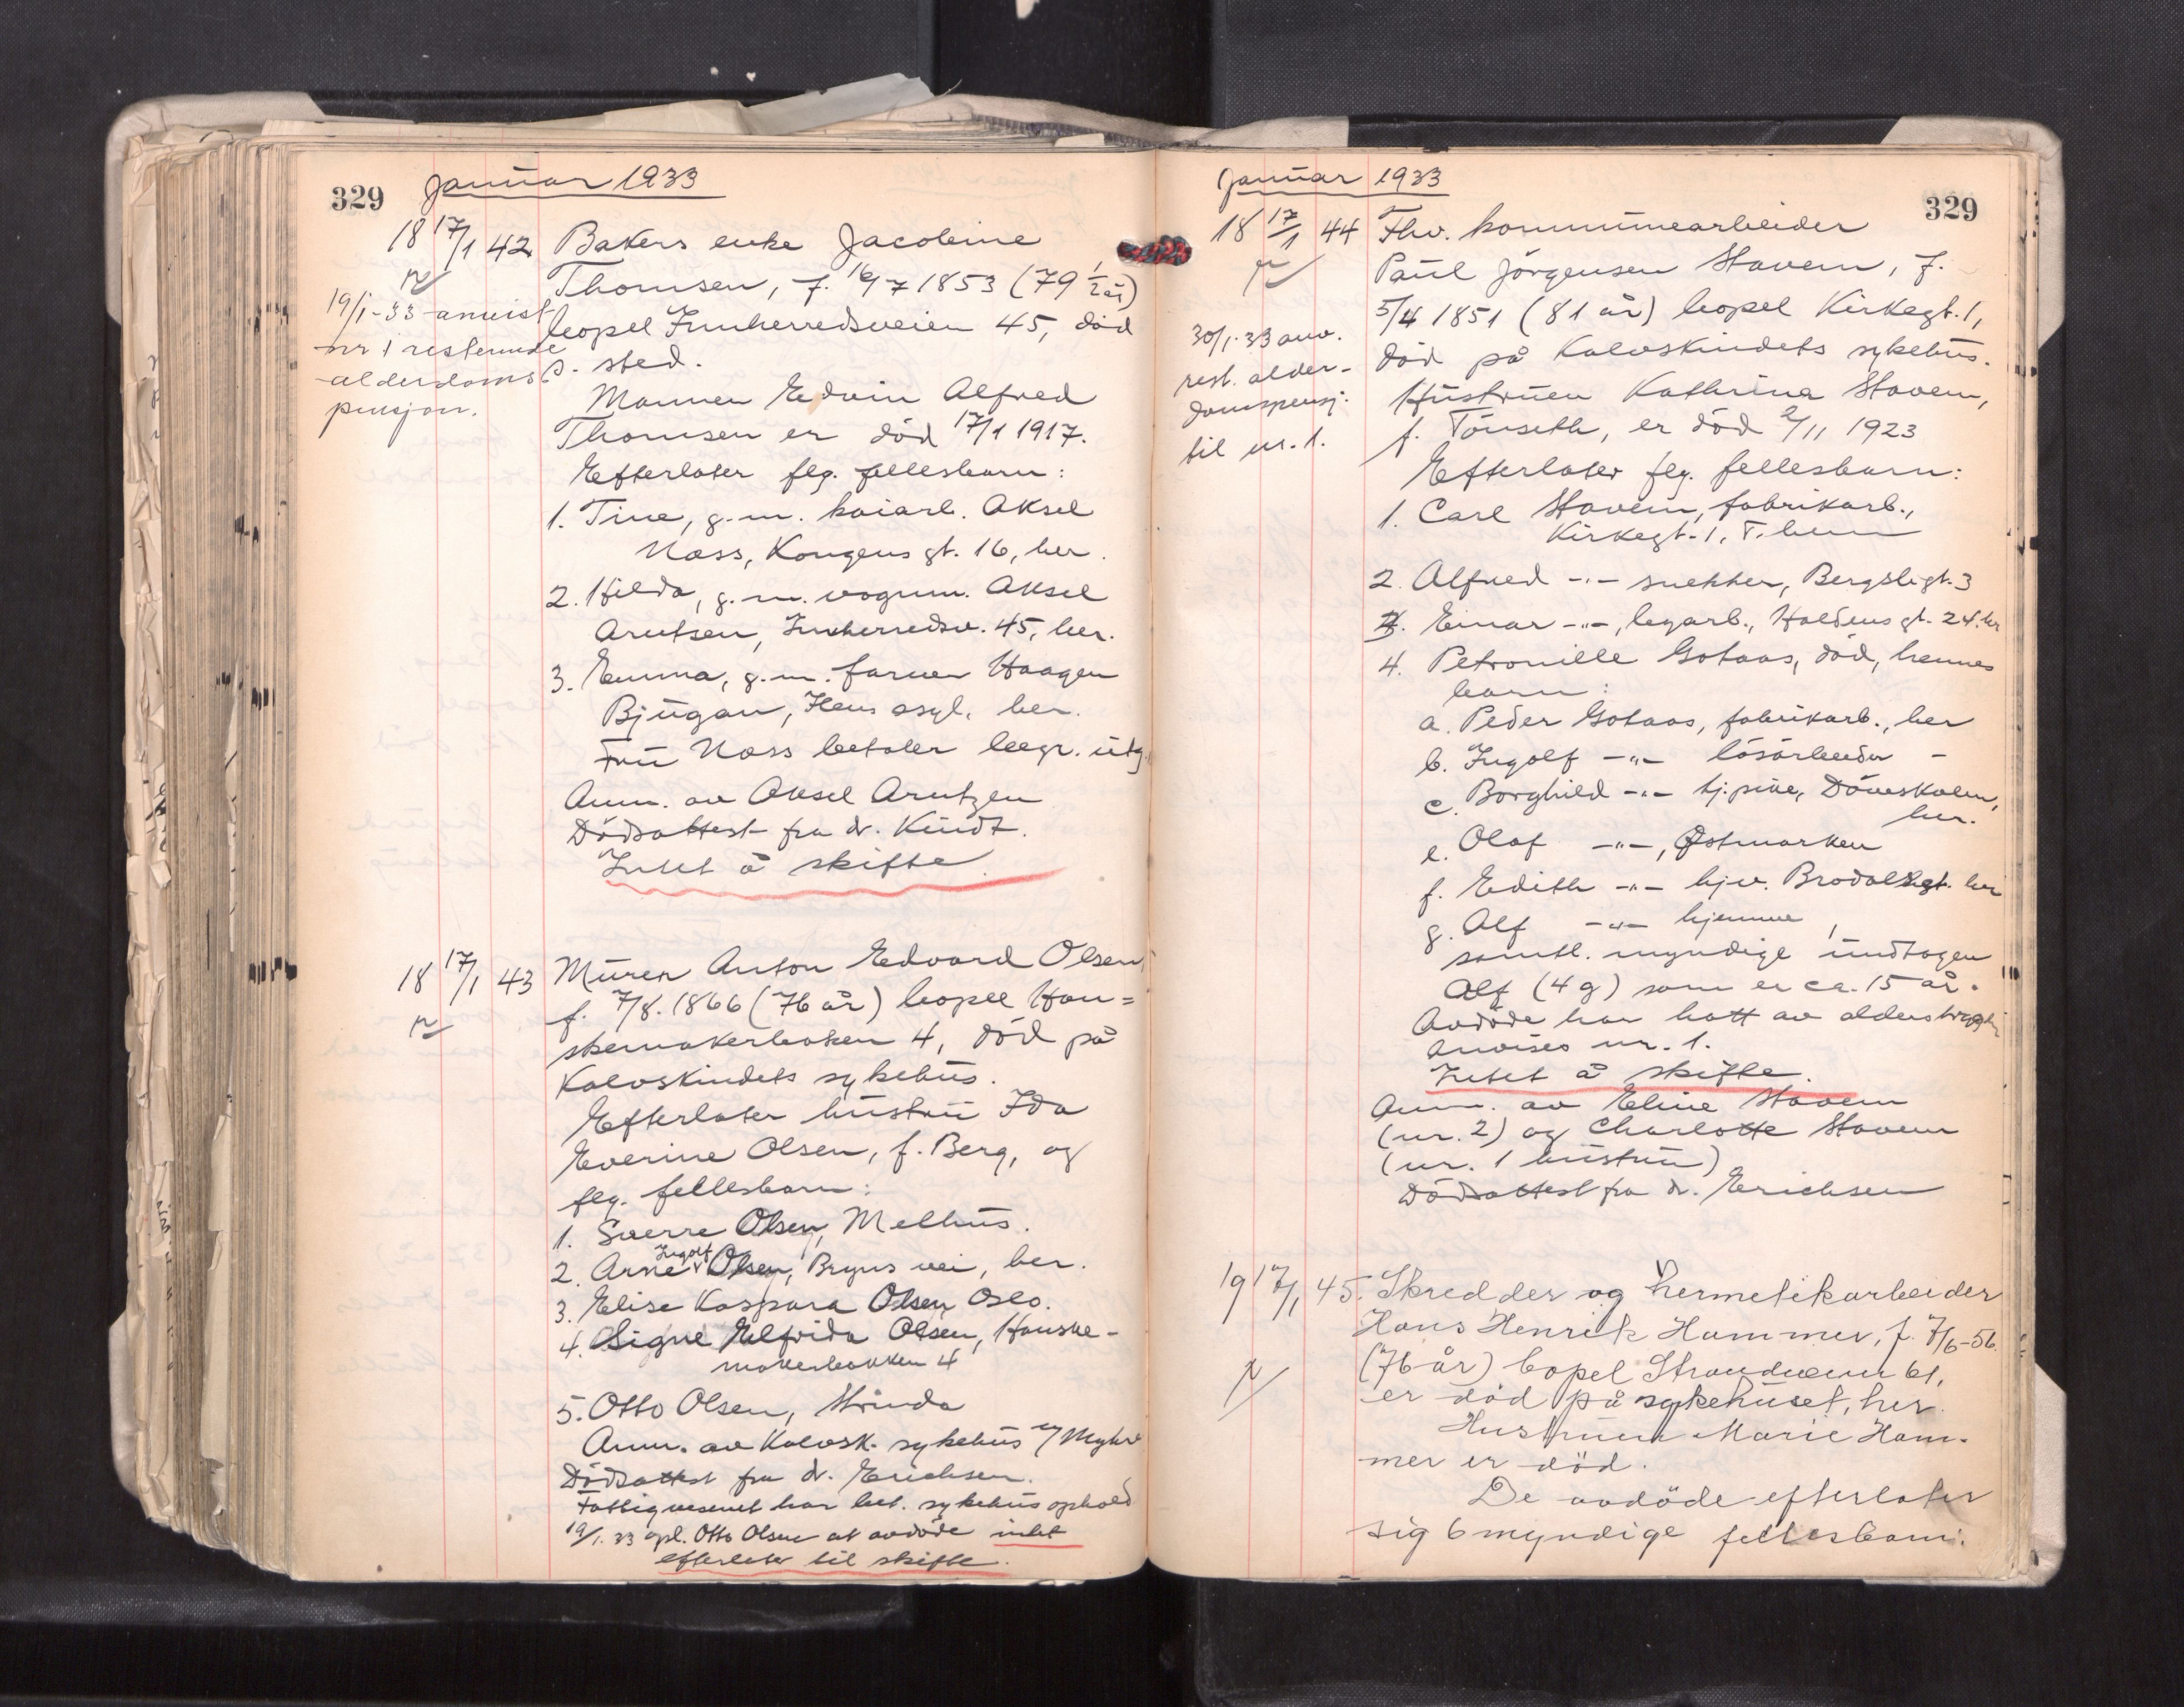 329
Januar 1933
18 17/1 42 Bakers enke Jacobine
Thomsen, f. 16/7 1853 (79 1/2 år)
bopel Innherredsveien 45, död
s. sted.
19/1-33 anvist
nr 1 resterende
alderdoms
pensjon.
Mannen Edvin Alfred
Thomsen er död 17/1 1917.
Efterlater flg. fellesbarn:
1. Tine, g.m. kaiarb. Aksel
Næss, Kongens gt. 16, her.
2. Hilda, g.m. vognm. Aksel
Arntsen, Innherredsv. 45, her.
3. Emma, g.m. farver Haagen
Bjugan, Hens asyl, her.
Fru Næss betaler begr. utg.
Anm. av Aksel Arntzen
Dödsattest fra dr. Kindt.
Intet å skifte.
18 17/1 43 Murer Anton Edvard Olsen,
f. 7/8. 1866 (76 år) bopel Han=
skemakerbakken 4, död på
Kalvskindets sykehus.
Efterlater hustru Ida
Everine Olsen, f. Berg, og
flg. fellesbarn:
1. Sverre Olsen, Melhus.
2. Arne Ingolf Olsen, Bryns vei, her.
3. Elise Kaspara Olsen Oslo.
4. Signe Elfrida Olsen, Hanske-
makerbakken 4
5. Otto Olsen, Strinda
Anm. av Kalvsk. sykehus v/ Myhre
Dödsattest fra dr. Erichsen.
Fattigvesenet har bet. sykehusophold
19/1. 33 opl. Otto Olsen at avdöde intet
efterlater til skifte.
Januar 1933
329
18 17/1 44 Fhv. kommunearbeider
Paul Jörgensen Stavem, f.
5/4 1851 (81 år) bopel Kirkegt. 1,
död på Kalvskindets sykehus.
30/1-33 anv.
rest. alder-
domspensj.
til nr. 1.
Hustruen Kathrina Stavem,
f. Tönseth, er död 2/11 1923
Efterlater flg. fellesbarn:
1. Carl Stavem, fabrikarb.,
Kirkegt. 1, T.hem
2. Alfred -"- snekker, Bergsligt. 3
3. Einar -"-, legarb., Holdens gt. 24. her
4. Petronille Gotaas, död, hennes
barn:
a. Peder Gotaas, fabrikarb., her
b. Ingolf -"- lösarbeider -
c. Borghild -"- tj.pike, Döveskolen,
her.
e. Olaf -"-, Østmarken
f. Edith -"- hjv. Brodals gt. her
g. Alf -"- hjemme,
samtl. myndige undtagen
Alf (4 g) som er ca. 15 år.
Avdöde har hatt av alderstrygden
Anvises nr. 1.
Intet å skifte.
Anm. av Eline Stavem
(nr. 2) og Charlotte Stavem
(nr. 1 hustru)
Dödsattest fra dr. Erichsen
19 17/1 45. Skredder og hermetikarbeider
Hans Henrik Hammer, f. 7/6-56.
(76 år) bopel Strandveien 61,
er död på sykehuset, her.
Hustruen Marie Ham-
mer er död.
De avdöde efterlater
sig 6 myndige fellesbarn: